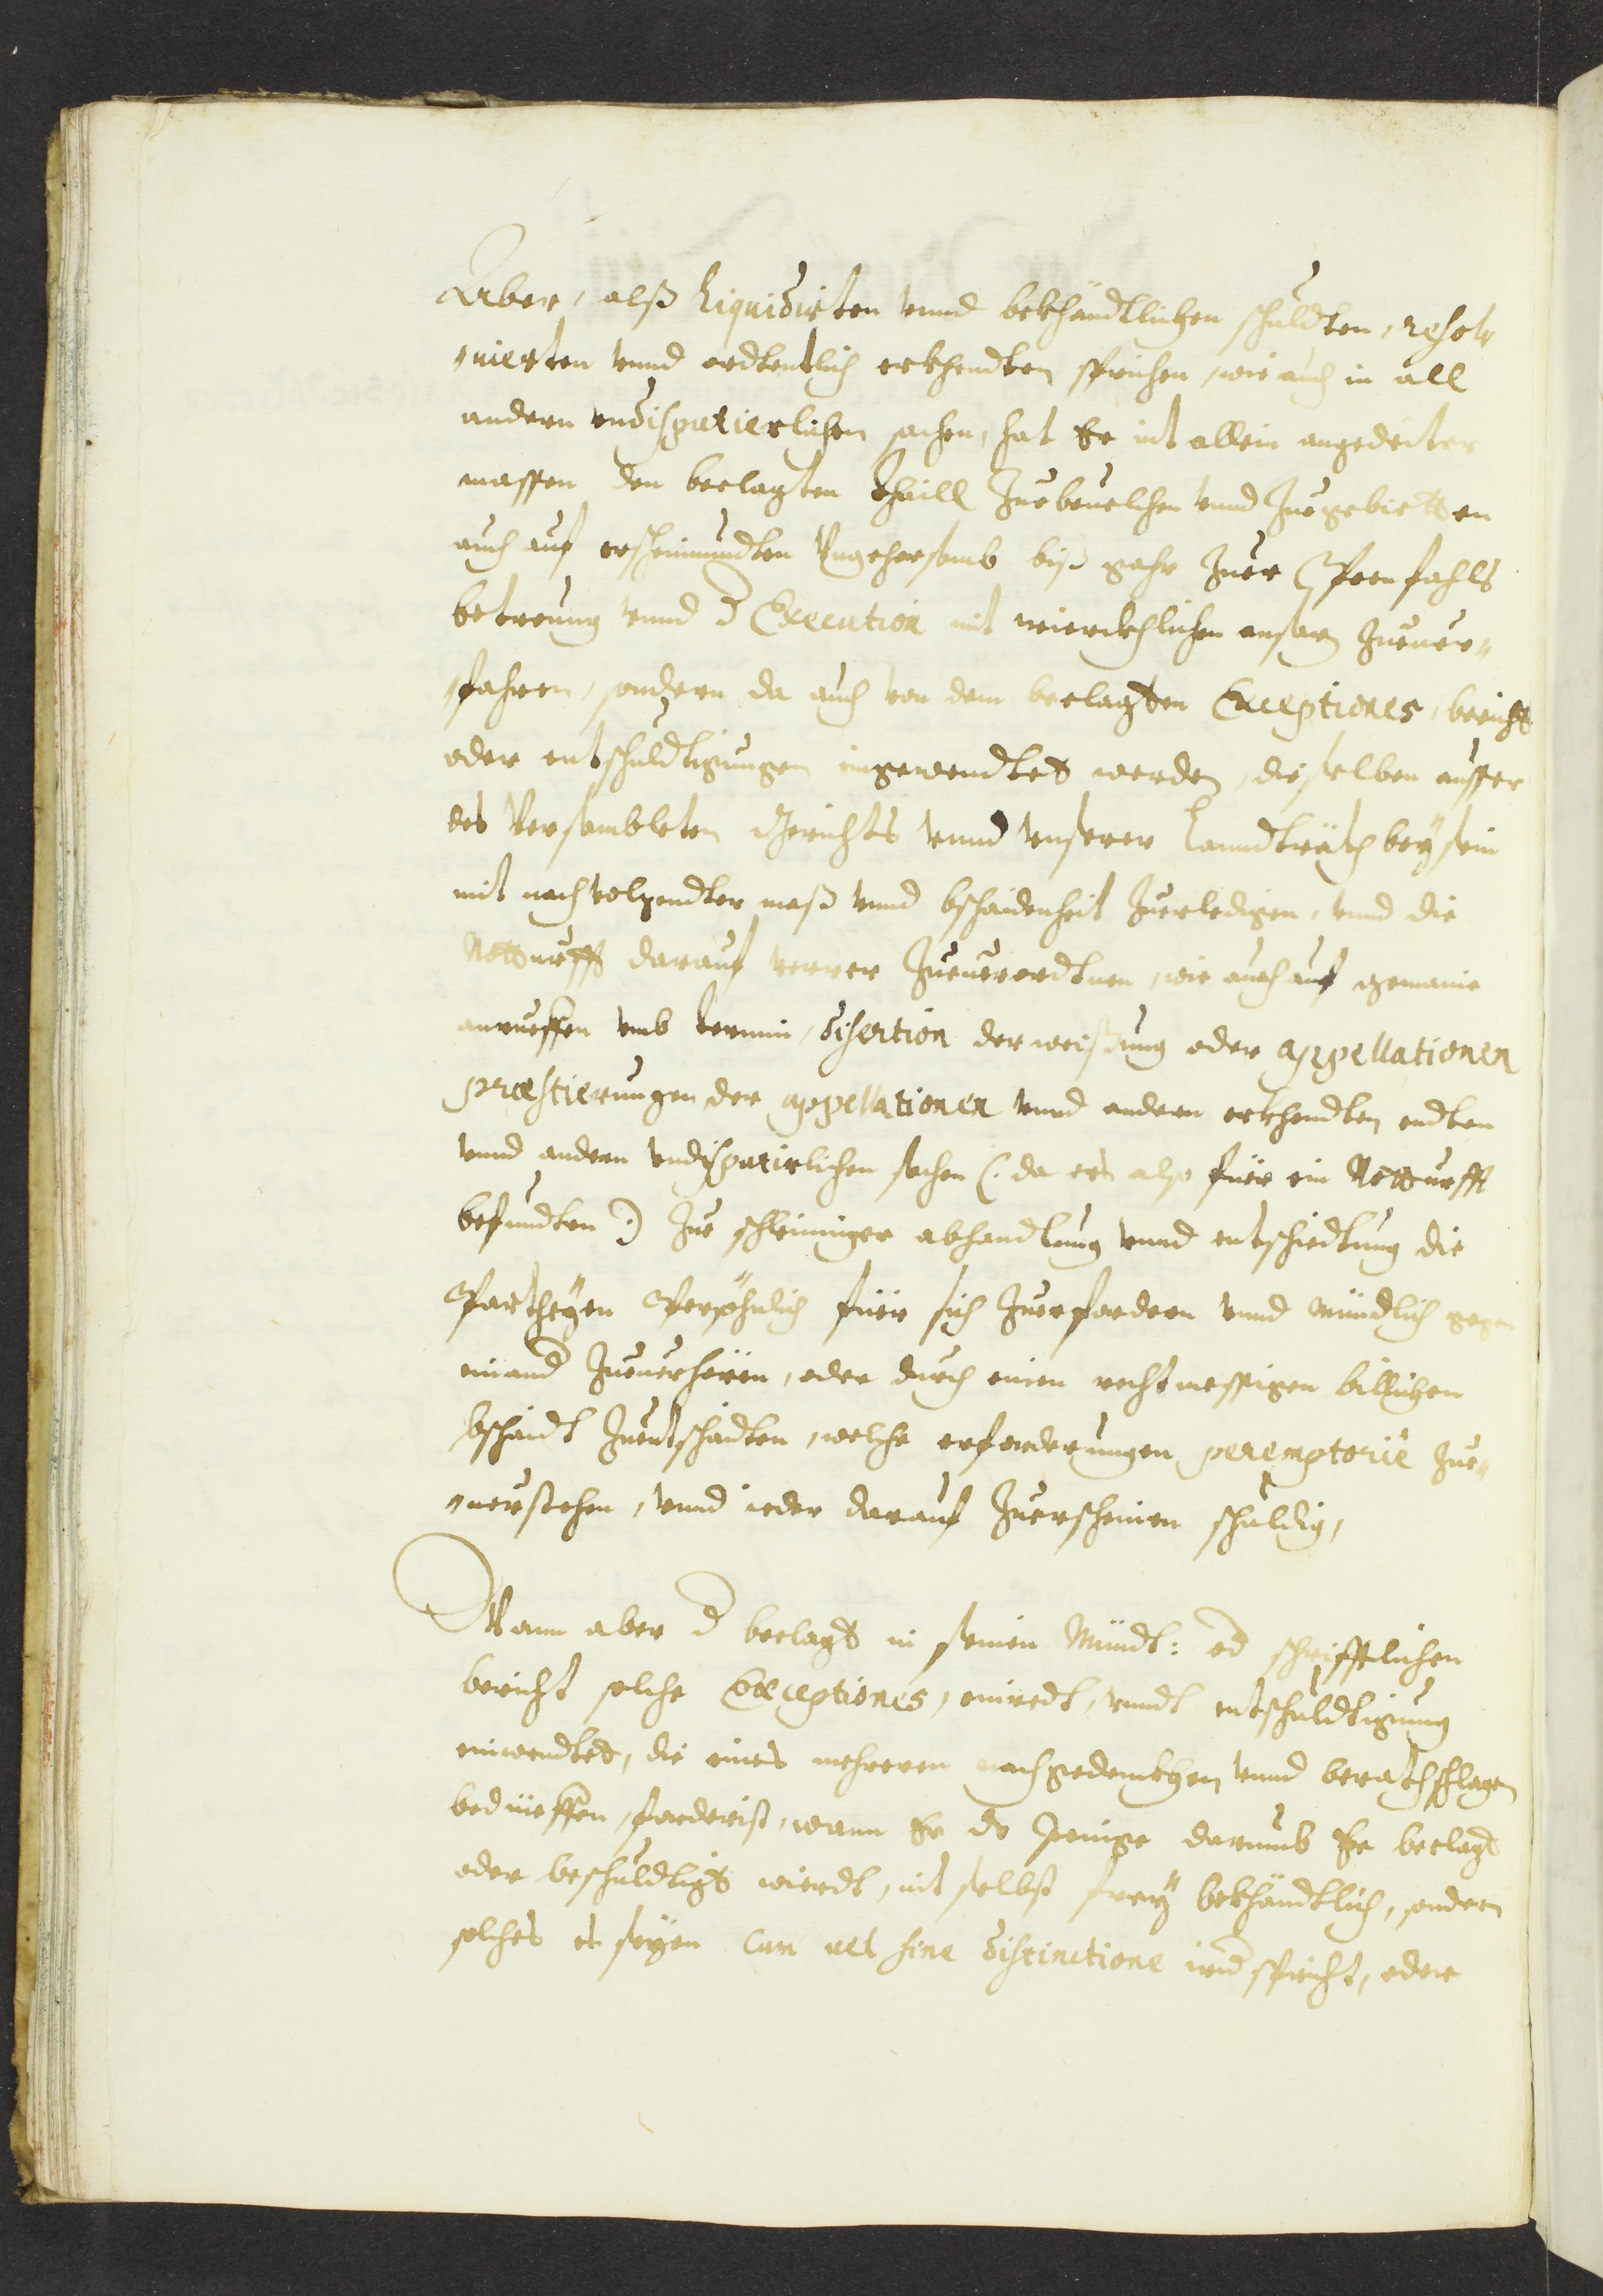 Aber, alß liquidirten vnnd bekhändtlichen schuldten, resol¬
uierten vnnd ordtentlich erkhendten sprüchen, wie auch in all
andern vndisputierlichen sachen, hat Er nit allein angedeiter
massen den beclagten thaill Zue beuelchen vnnd Zue gebietten
auch auf erscheinundten Vngehorsamb biß gahr Zuer Peenfahls
betroung vnnd d Execution mit wierckhlichen ansaz Zueuer¬
¬fahren, sondern da auch von dem beclagten Exceptiones, bericht
oder entschuldtigungen eingewendtet werden, dieselben ausser
des Versambleten Gerichts vnnd vnserer Landträth beysein
mit nachvolgendter maß vnnd bschaidenheit Zuerledigen, vnnd die
Notturfft darauf verrer Zueuerordtnen, wie auch auf gemaine
anrueffen vmb termin, disertion der weißung oder appellationen
præstierungen der appellationen vnnd andern erkhendten endten
vnnd andern vndisputirlichen sachen (: da es also für ein Notturfft
befundten :) Zue schleiniger abhandlung vnnd entschiedtung die
Partheyen Persöhnlich für sich Zuerfordern vnnd mündlich gegen
einand Zueuerhören, oder durch einen rechtmessigen billichen
bschaidt Zuentschaidten, welche erforderungen peremptoriè Zue¬
¬uerstehen, vnnd ieder darauf Zuerscheinen schuldig,
Wann aber d beclagt in seinen Mündt: od schrifftlichen
bericht solche Exceptiones, einredt, vnndt entschuldtigung
einwendtet, die eines mehreren nachgedenckhen vnnd berathschlagen
bedüeffen, forderist, wann Er ds Jenige darumb Er beclagt
oder beschuldtigt wierdt, nit selbst frey bekhändtlich, sondern
solches es seyen cum uel sine distinctione widspricht, oder